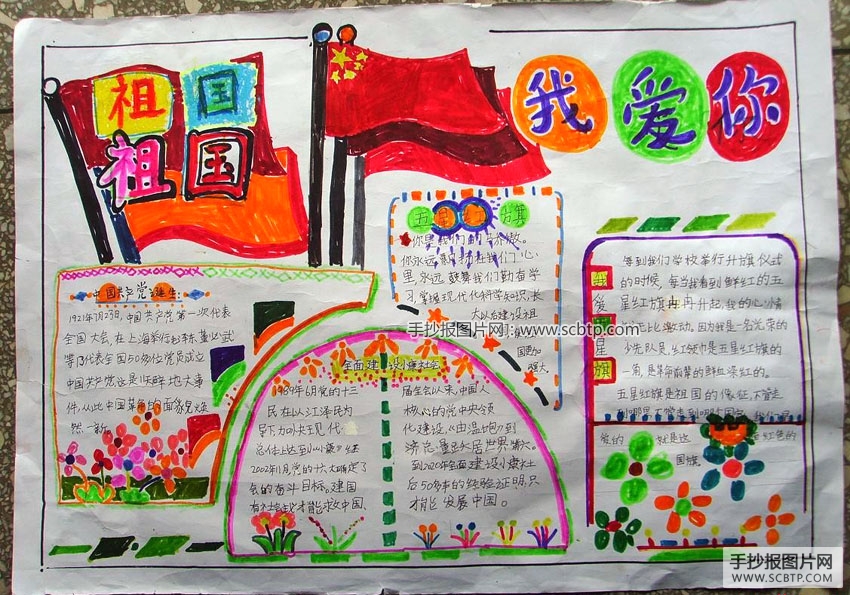 祖国
祖国
我爱你
五星红旗
你是我们的骄傲。
你永远飘扬在我们心
里,永远鼓舞我们勤奋学
习,掌握现代化科学知识,长
大以后建设祖
国更加
强大。
手抄报图片网:www.scbtp.com
中国共产党的诞生:
1921年7月23日,中国共产党第一次代表
全国大会,在上海举行
等13代表全国50多位党员成立
中国共产党这是
件,从此中国革命的面貌
然一新。
全面建设小康社会
1989年6月党的十三
民在以江泽民为
总体上达到《小康》
2002年11月党的十六大确定了
会的奋斗目标,建国
有社会主义才能救中国,
届全会以来,中国人
核心的党中央领
化建设,《由温饱》到
到2020年全面建设小康社
后50多年的经验证明,只
才能发展中国。
我爱五星红旗
每到我们学校举行升旗仪式
的时候,每当我看到鲜红的五
星红旗冉冉升起,我的心情
无比激动。因为我是一名光荣的
少先队员,红领巾是五星红旗的
一角,是革命前辈的鲜血染红的。
五星红旗是祖国的象征,不管走
爱的
就是这
红色的
国旗
手抄报图片网
WWW.SCBTP.COM